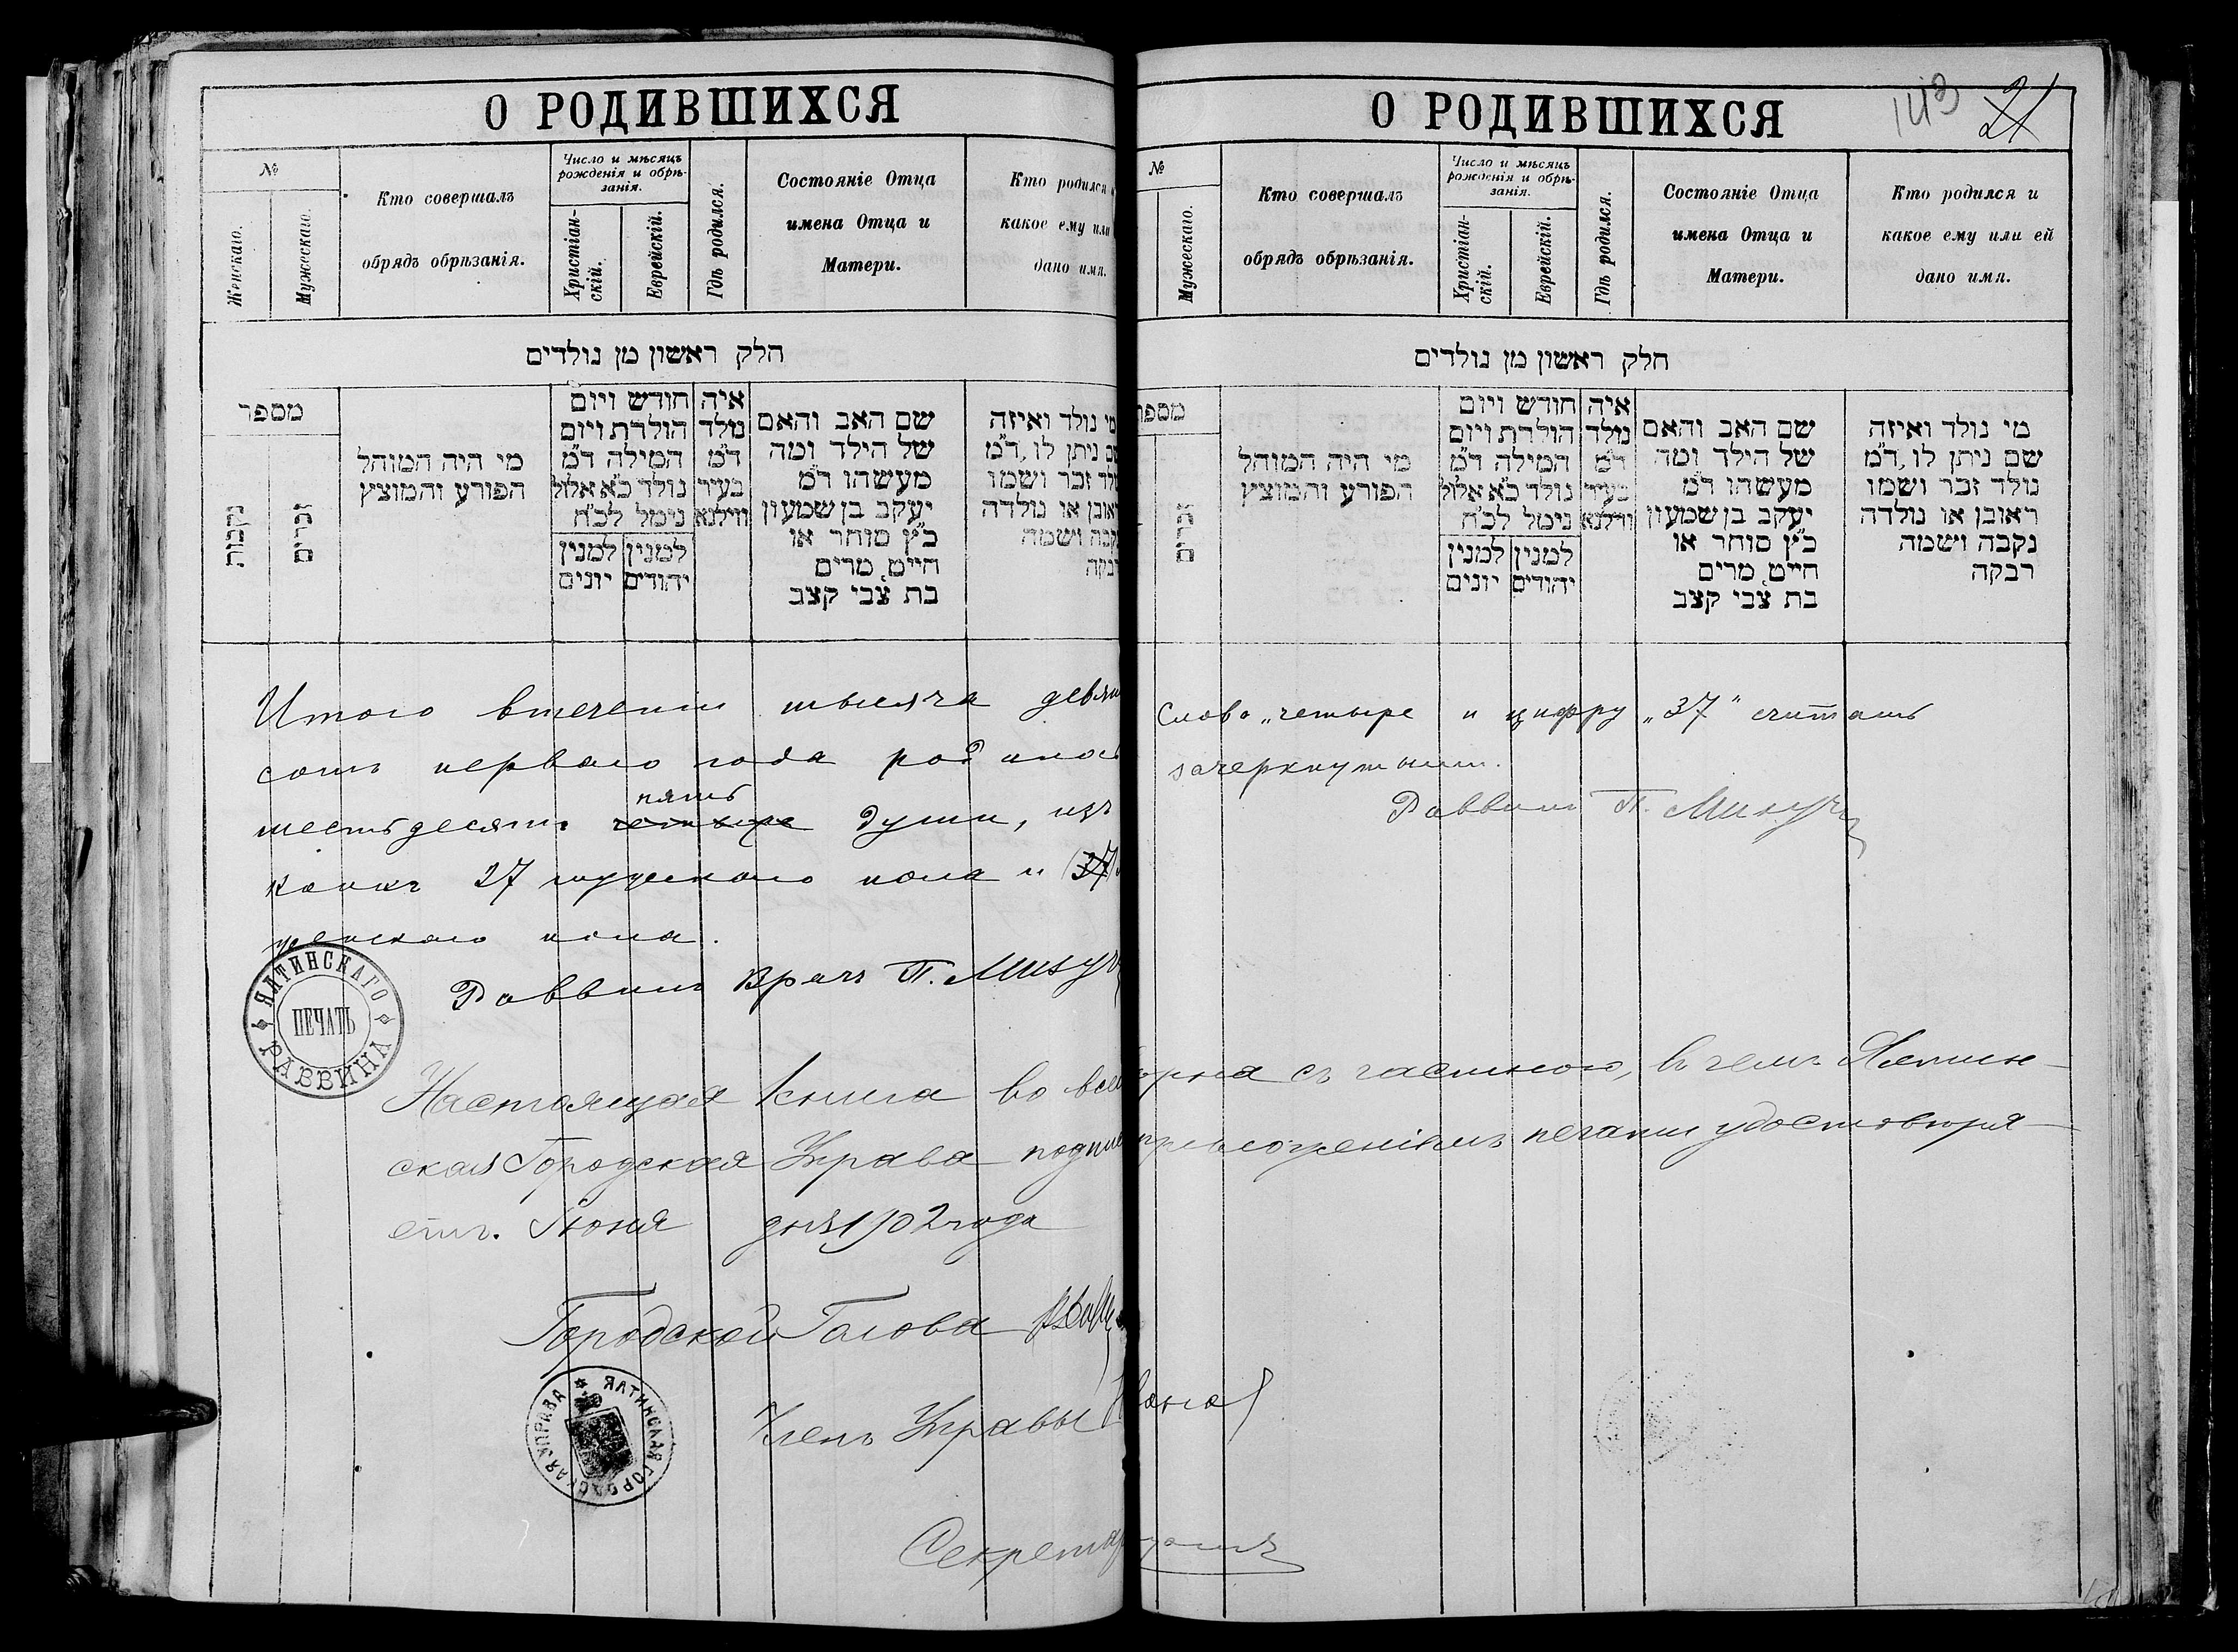 О РОДИВШИХСЯ
№
Женскаго.
Мужескаго.
Кто совершалъ
обрядъ обрѣзанія.
Число и мѣсяцъ
рожденія и обрѣ-
занія.
Христіан-
скій.
Еврейскій.
Гдѣ родился.
Состояніе Отца
имена Отца и
Матери.
Кто родился и
какое ему или
дано имя.
חלק ראשון מן נולדים
מספר
נקבות
זכרים
מי היה המוהל
הפורע והמוצץ
חודש ויום
הולדת ויום
המילה ד״מ
נולד כ״א אלול
נימל לכ״ח
למנין
יהודים
למנין
יונים
איה
נולד
ד״מ
בעיר
ווילנא
שם האב והאם
של הילד ומה
מעשהו ד״מ
יעקב בן שמעון
כ״ץ סוחר או
חייט, מרים
בת צבי קצב
מי נולד ואיזה
שם ניתן לו, ד״מ
נולד זכר ושמו
ראובן או נולדה
נקבה ושמה
רבקה
Итого втеченіи тысяча девят
сотъ перваго года родилось
пять
шестьдесятъ четыре души, изъ
коихъ 27 мужескаго пола и (37)
женскаго пола.
Раввинъ Врачъ П.
ЯЛТИНСКАГО РАВВИНА
ПЕЧАТЬ
Настоящая книга во всем
ская Городская Управа подпи
етъ. Іюня дня 1902 года
Городской Голова
Членъ Управы
ЯЛТИНСКАЯ ГОРОДСКАЯ УПРАВА
Секретарь
О РОДИВШИХСЯ
143
21
№
Мужескаго.
Кто совершалъ
обрядъ обрѣзанія.
Число и мѣсяцъ
рожденія и обрѣ-
занія.
Христіан-
скій.
Еврейскій.
Гдѣ родился.
Состояніе Отца
имена Отца и
Матери.
Кто родился и
какое ему или ей
дано имя.
חלק ראשון מן נולדים
מספר
זכרים
מי היה המוהל
הפורע והמוצץ
חודש ויום
הולדת ויום
המילה ד״מ
נולד כ״א אלול
נימל לכ״ח
למנין
יהודים
למנין
יונים
איה
נולד
ד״מ
בעיר
ווילנא
שם האב והאם
של הילד ומה
מעשהו ד״מ
יעקב בן שמעון
כ״ץ סוחר או
חייט, מרים
בת צבי קצב
מי נולד ואיזה
שם ניתן לו, ד״מ
נולד זכר ושמו
ראובן או נולדה
נקבה ושמה
רבקה
Слово „четыре и цифру „37" считать
зачеркнутыми.
Раввинъ П.
съ частною, въ чемъ Ялтин-
приложеніемъ печати удостовѣря-